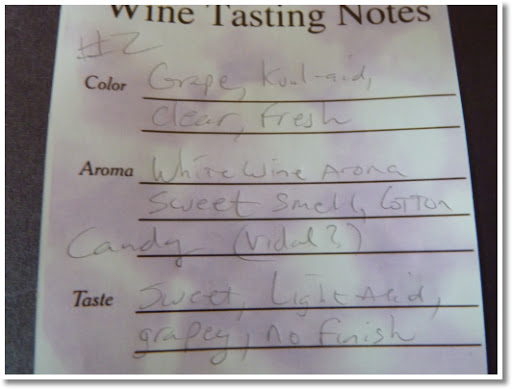 Wine Tasting Notes
#2
Color Grape, Kool-aid,
Clear, Fresh
Aroma White Wine Aroma
Sweet Smell, Cotton
Candy (Vidal?)
Taste Sweet, Light Acid,
grapey, no finish